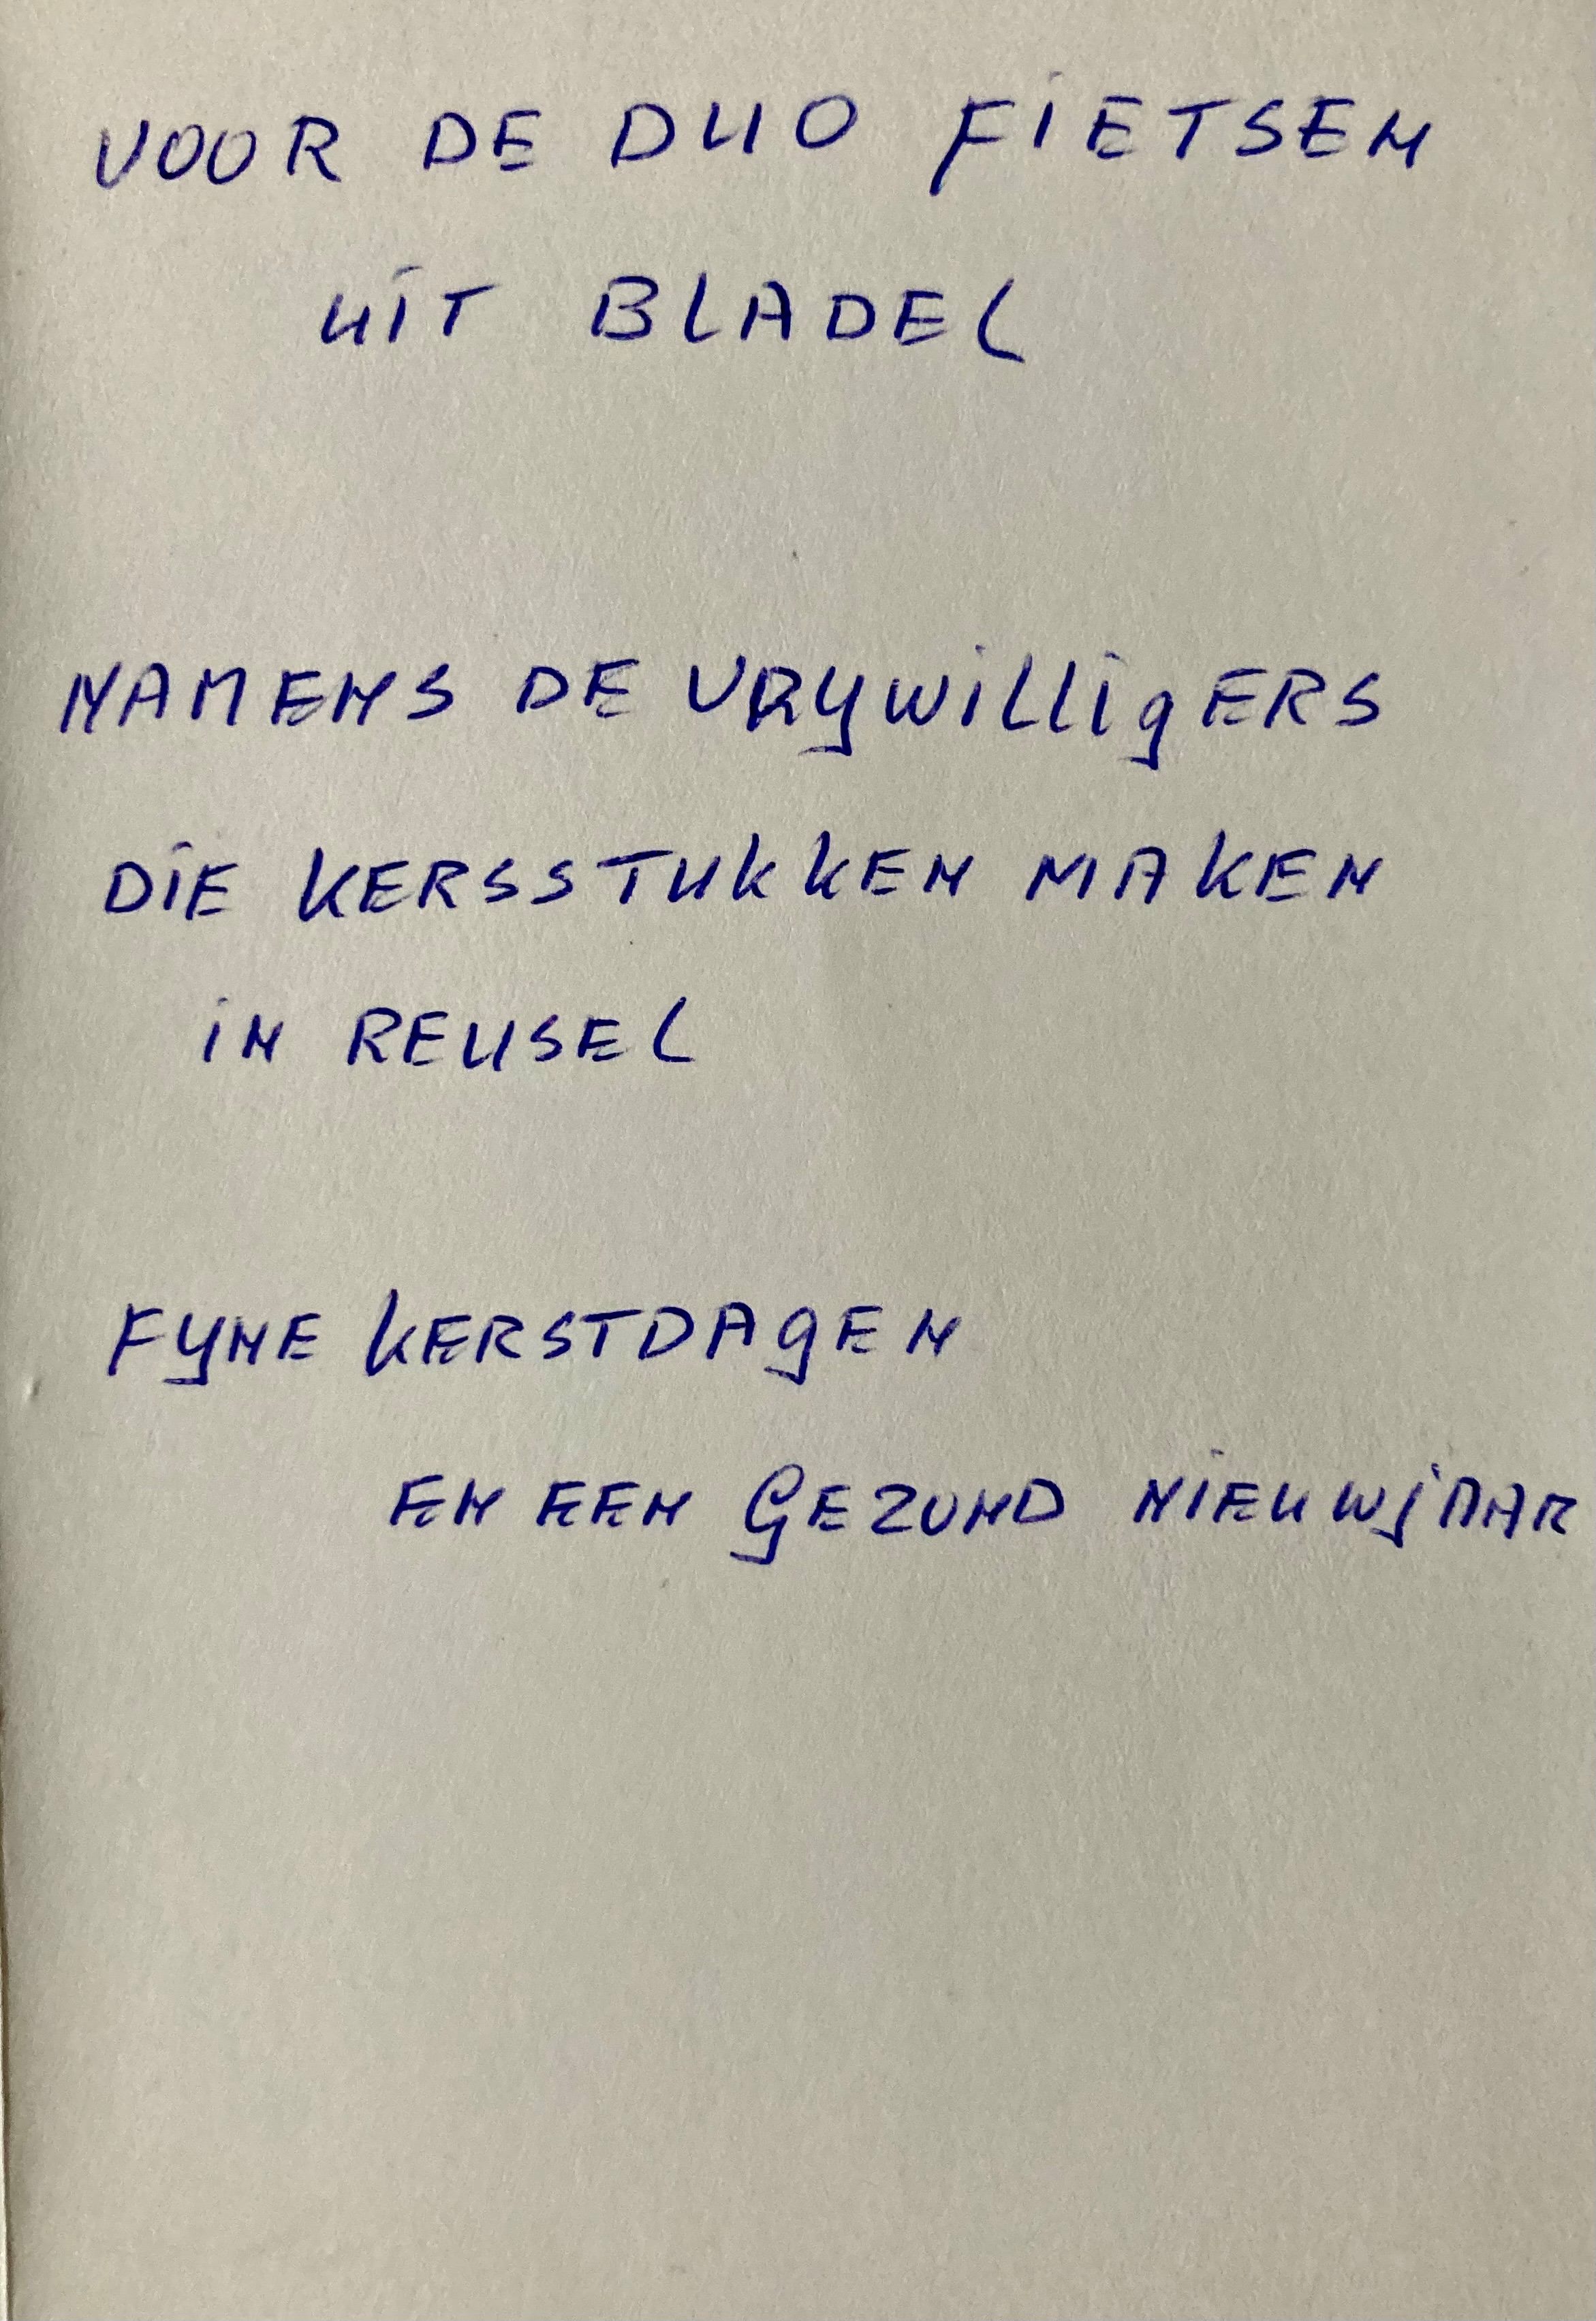 VOOR DE DUO FiETSEN
UiT BLADEL
NAMENS DE VRYWiLLigERS
DiE KERSSTUKKEN MAKEN
iN REUSEL
FYNE KERSTDAgEN
EN EEN GEZOND NiEUWjAAR